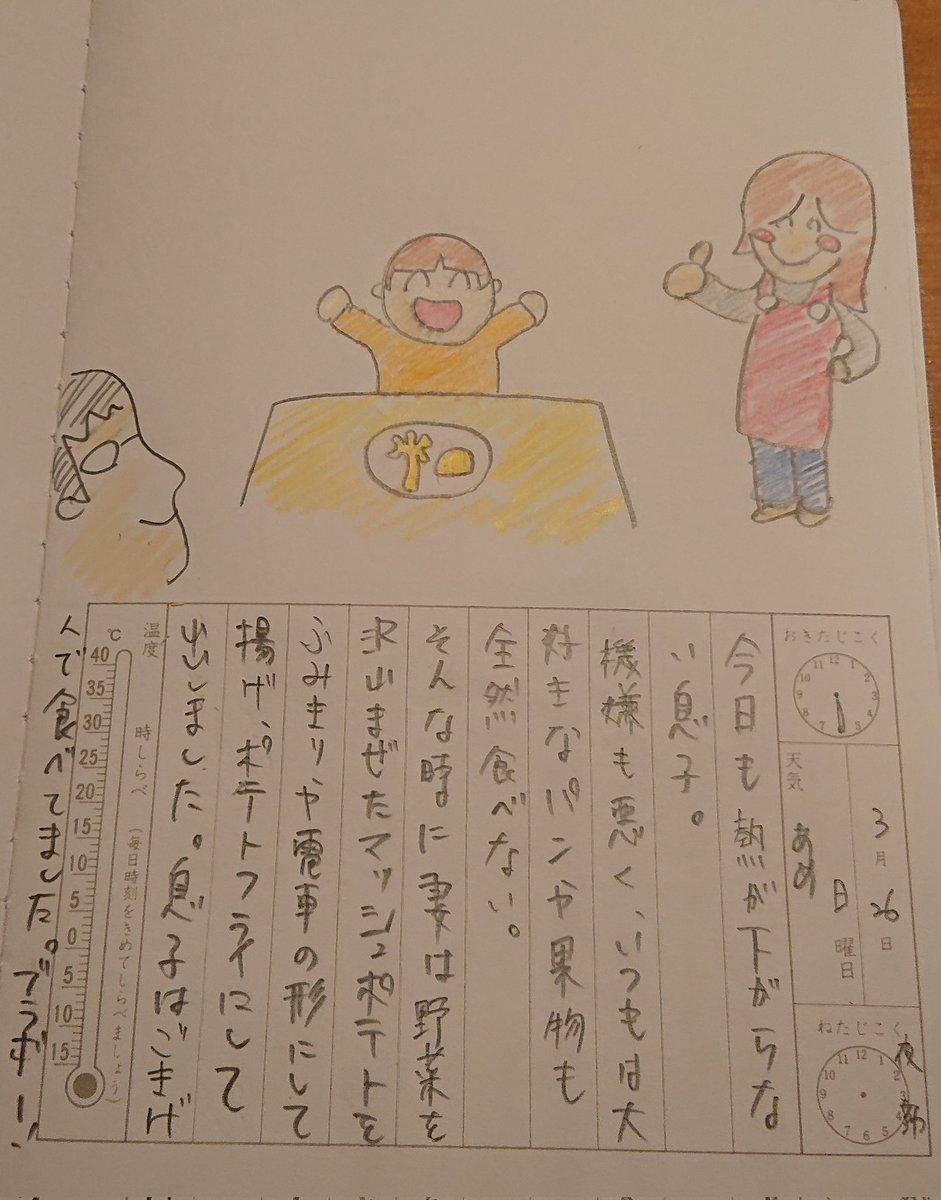 おきたじこく
12 1 2 3 4 5 6 7 8 9 10 11
3月26日
日曜日
天気 あめ
ねたじこく
12 1 2 3 4 5 6 7 8 9 10 11
夜勤
今日も熱が下がらな
い息子。
機嫌も悪く、いつもは大
好きなパンや果物も
全然食べない。
そんな時に妻は野菜を
沢山まぜたマッシュポテトを
ふみきりや電車の形にして
揚げ、ポテトフライにして
出しました。息子はごきげ
温度 時しらべ (毎日時刻をきめてしらべましょう)
℃
40
35
30
25
20
15
10
5
0
5
10
15
んで食べてました。ブラボー!